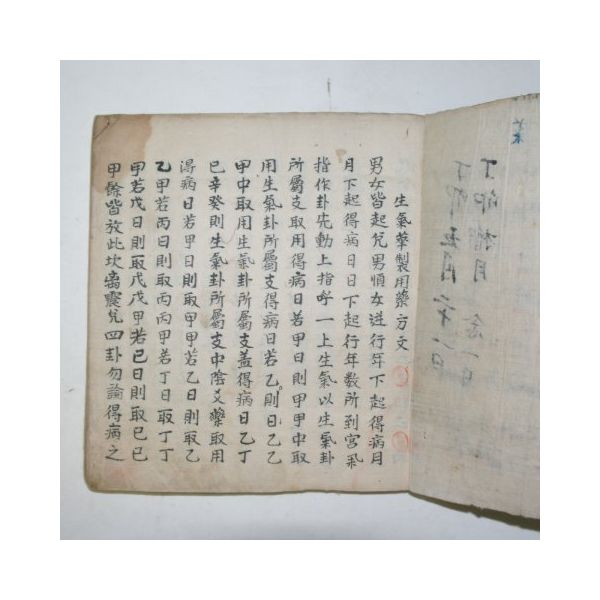 丁卯 月 念一日
丁卯五月二十一日
生氣藥製用藥方文
男女皆起兌男順女逆行年下起得病月
月下起得病日日下起行年数所到宮永
指作卦先動上指呼一上生氣以生氣卦
所屬支取用得病日若甲日則甲甲中取
用生氣卦所屬支得病日若乙則日乙乙
甲中取用生氣卦所屬支蓋得病日乙丁
已辛癸則生氣卦所屬支中陰爻藥取用
得病日若甲日則取甲甲若乙日則取乙
乙甲若丙日則取丙丙甲若丁日取丁丁
甲若戊日則取戊戊甲若已日則取已已
甲餘皆放此坎离震兌四卦勿論得病之